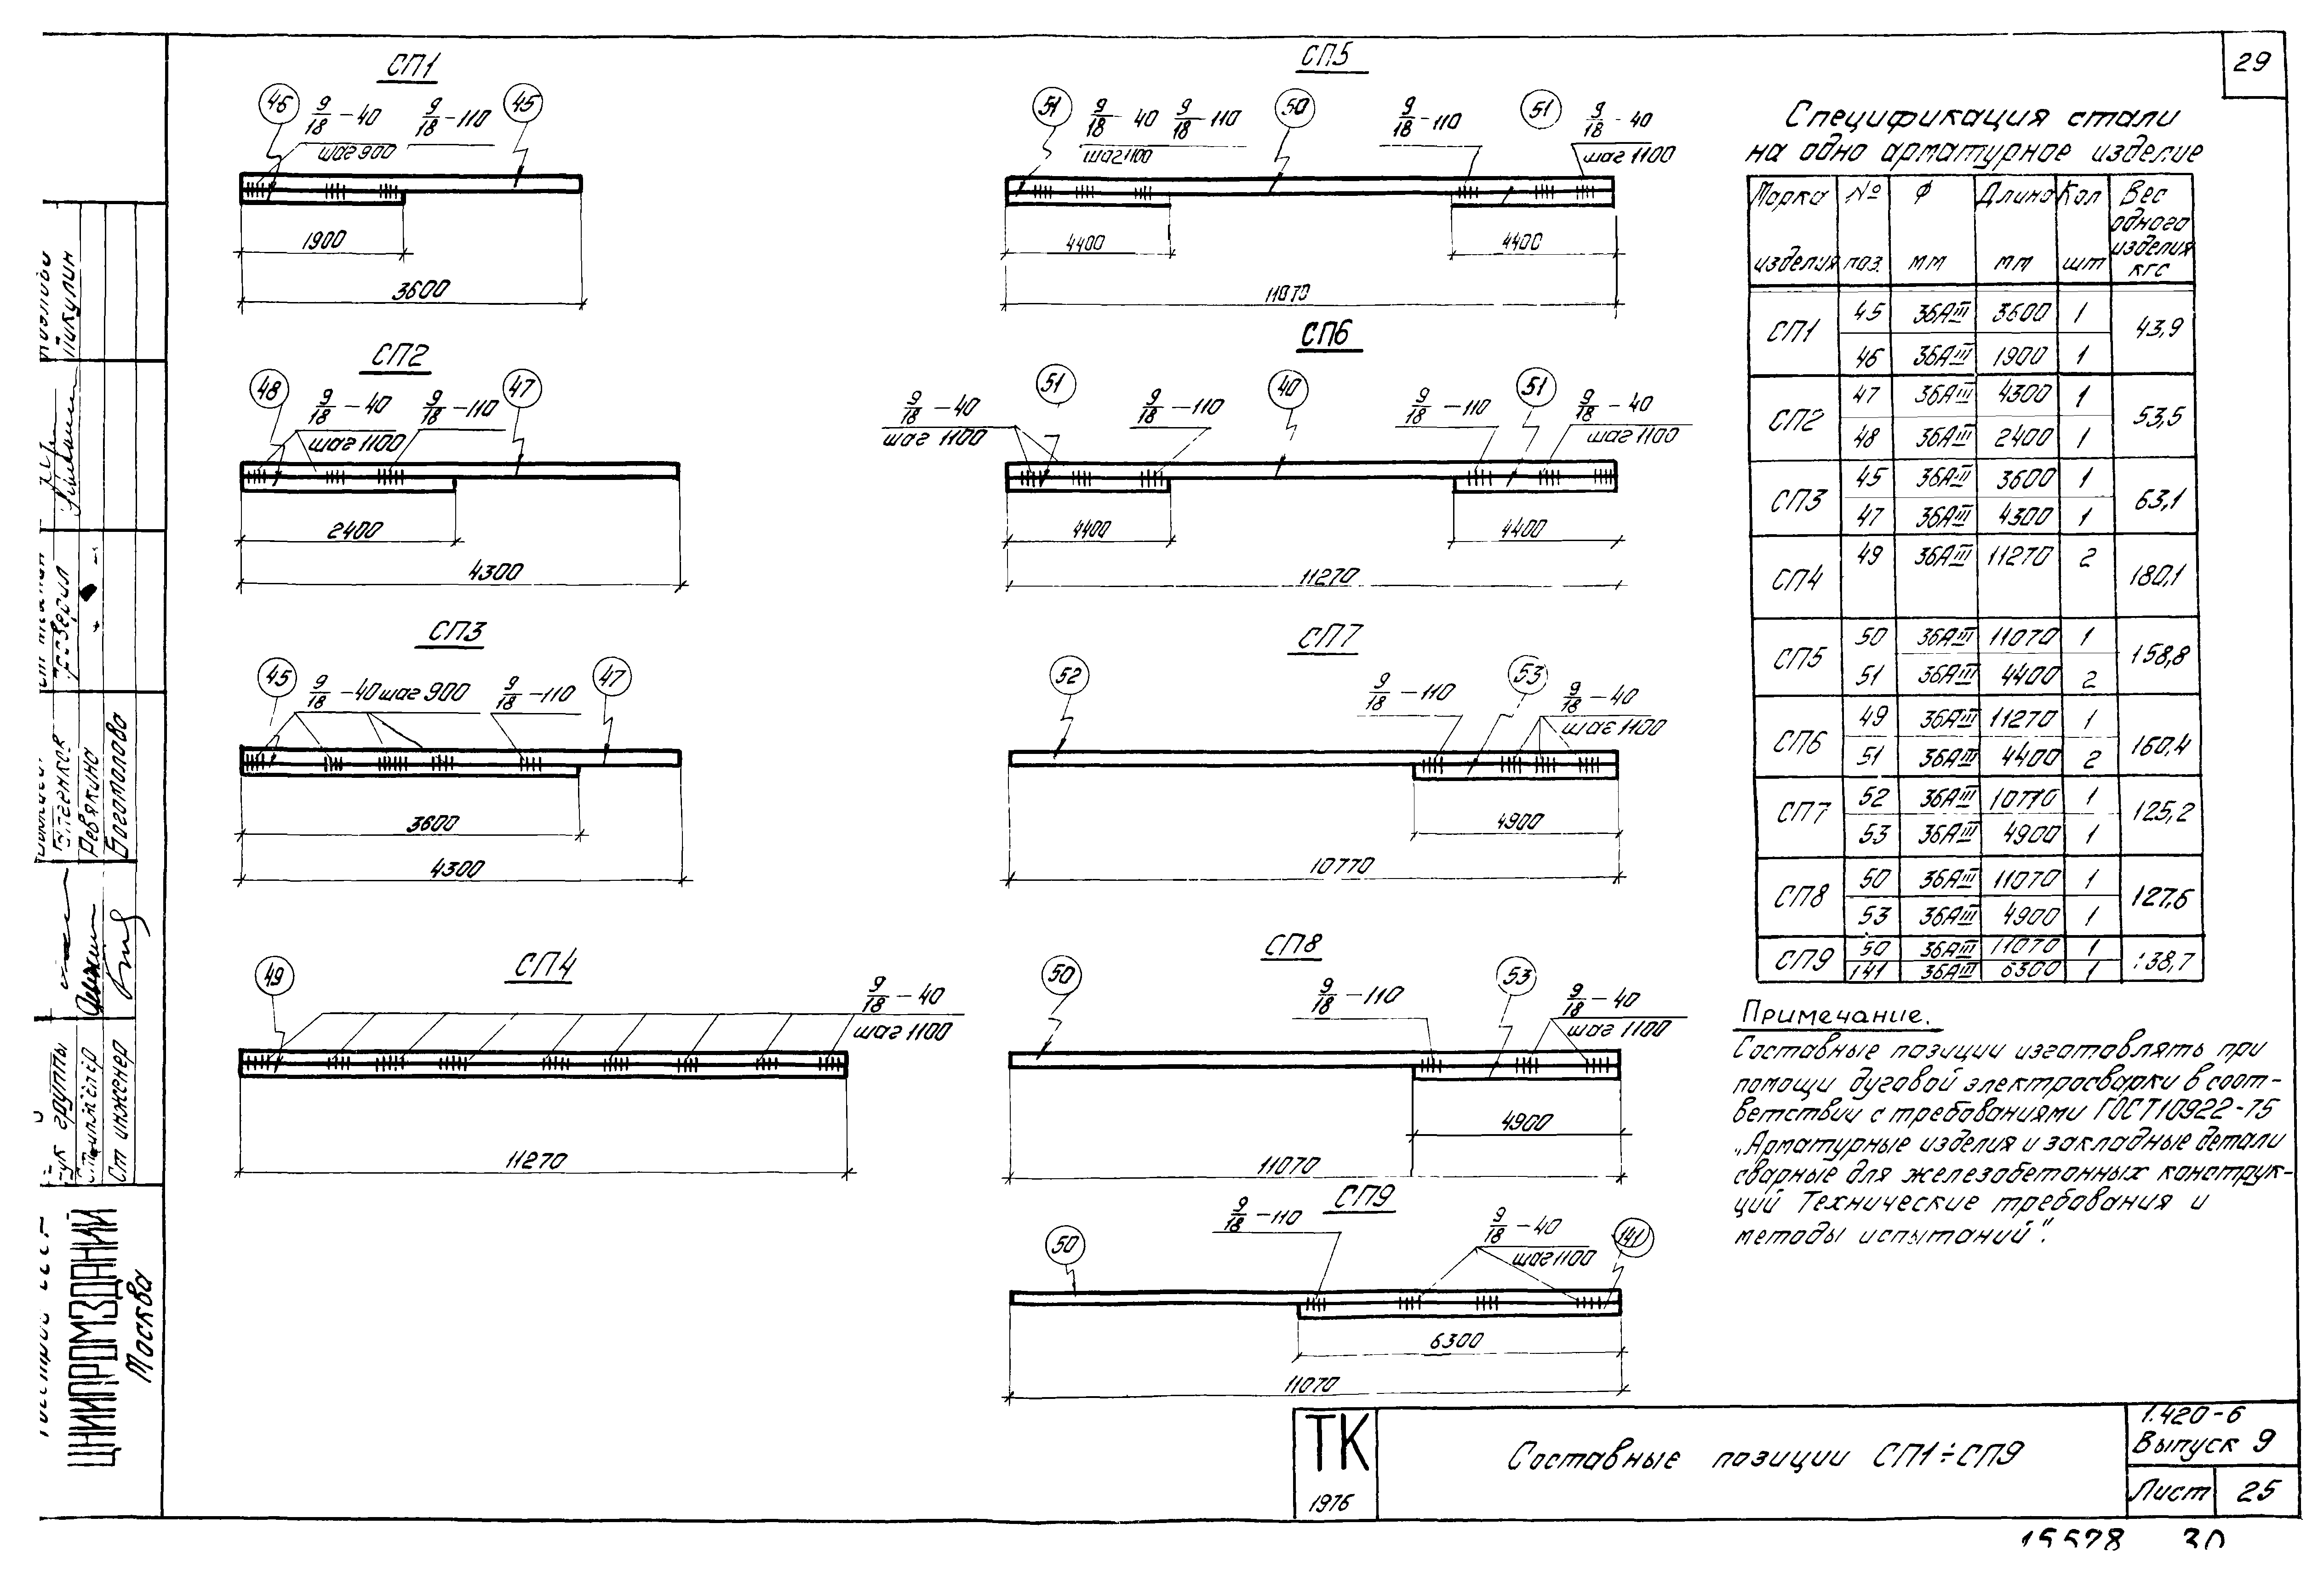 29
СП1
46
9/18 – 40
шаг 900
9/18 – 110
45
1900
3600
СП2
48
9/18 – 40
шаг 1100
9/18 – 110
47
2400
4300
СП3
45
9/18 – 40 шаг 900
9/18 – 110
47
3600
4300
СП4
49
9/18 – 40
шаг 1100
11270
СП5
51
9/18 – 40
шаг 1100
9/18 – 110
50
9/18 – 110
51
9/18 – 40
шаг 1100
4400
4400
11070
СП6
9/18 – 40
шаг 1100
51
9/18 – 110
40
9/18 – 110
51
9/18 – 40
шаг 1100
4400
4400
11270
СП7
52
9/18 – 110
53
9/18 – 40
шаг 1100
4900
10770
СП8
50
9/18 – 110
53
9/18 – 40
шаг 1100
4900
11070
СП9
50
9/18 – 110
9/18 – 40
шаг 1100
141
6300
11070
Спецификация стали
на одно арматурное изделие
Марка изделия №№ поз. Ф мм Длина мм Кол шт Вес одного изделия кгс
СП1 45 36АIII 3600 1 43,9
46 36АIII 1900 1
СП2 47 36АIII 4300 1 53,5
48 36АIII 2400 1
СП3 45 36АIII 3600 1 63,1
47 36АIII 4300 1
СП4 49 36АIII 11270 2 180,1
СП5 50 36АIII 11070 1 158,8
51 36АIII 4400 2
СП6 49 36АIII 11270 1 160,4
51 36АIII 4400 2
СП7 52 36АIII 10770 1 125,2
53 36АIII 4900 1
СП8 50 36АIII 11070 1 127,6
53 36АIII 4900 1
СП9 50 36АIII 11070 1 138,7
141 36АIII 6300 1
Примечание.
Составные позиции изготовлять при
помощи дуговой электросварки в соот-
ветствии с требованиями ГОСТ 10922-75
„Арматурные изделия и закладные детали
сварные для железобетонных конструк-
ций Технические требования и
методы испытаний".
ТК
1976
Составные позиции СП1÷СП9
1.420-6
Выпуск 9
Лист 25
15578 30
Никулин
Ревякина
Богомолова
группы
Ст инженер
ЦНИИПРОМЗДАНИЙ
Москва